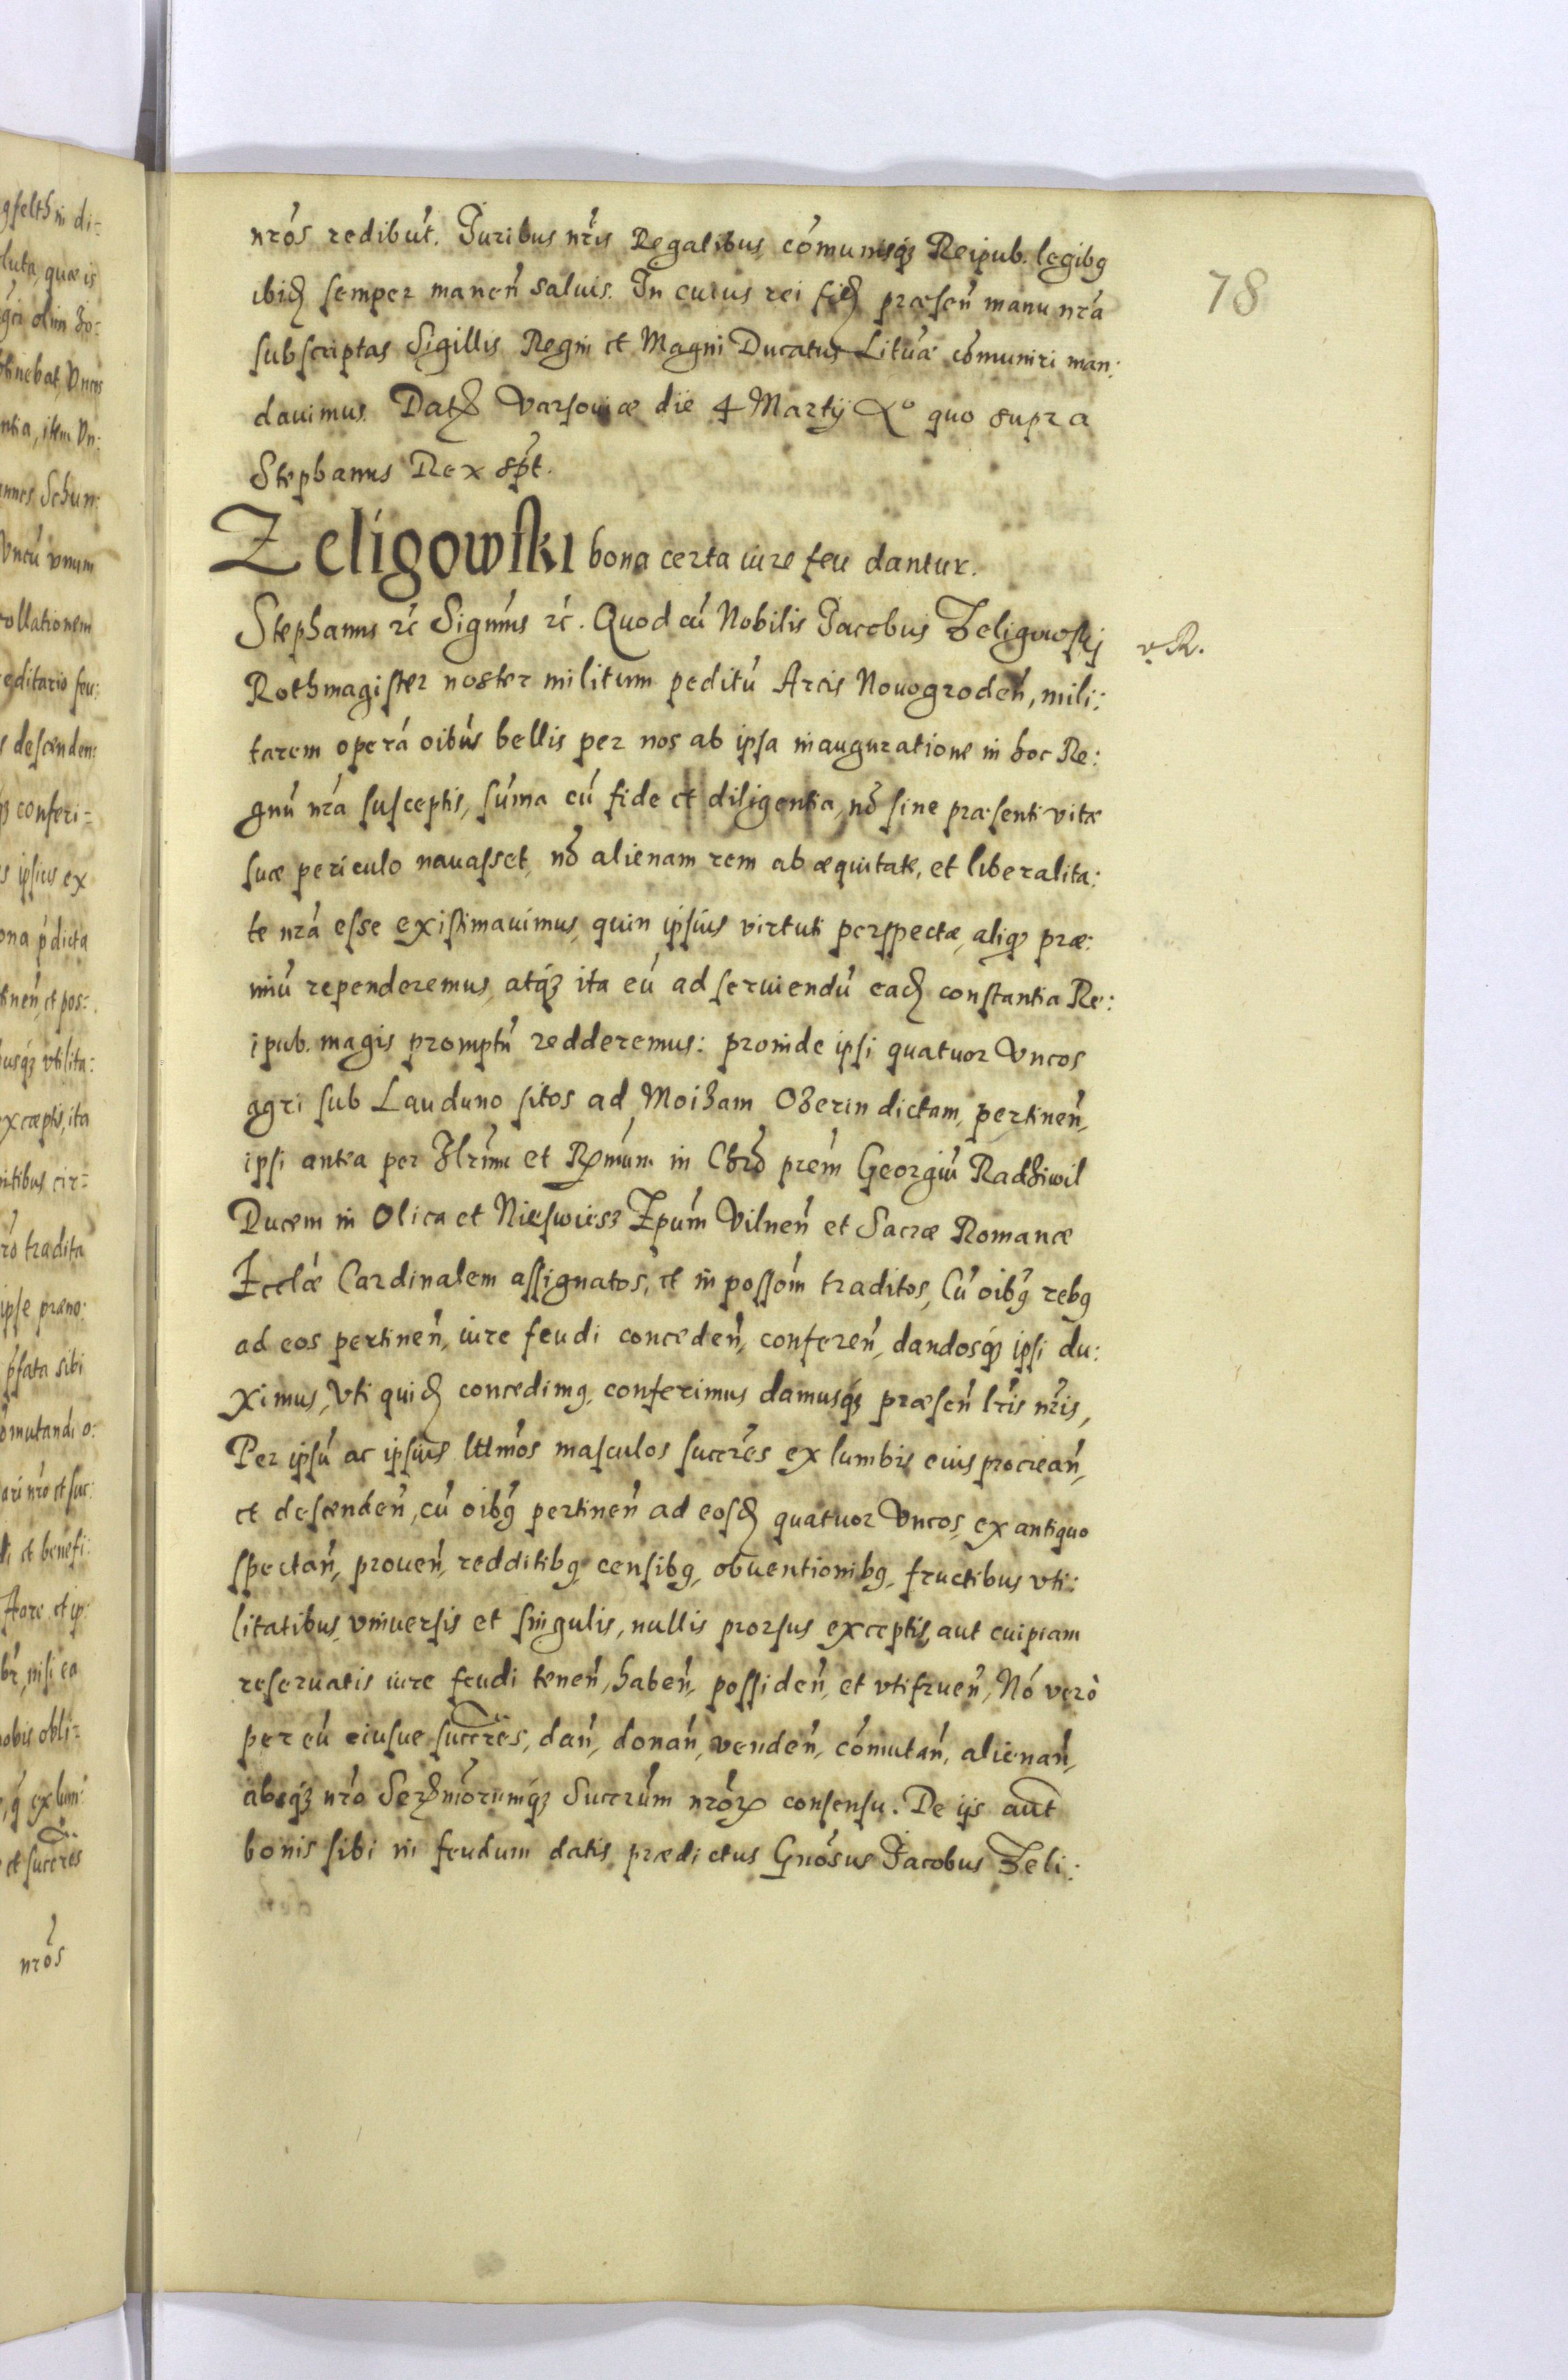 nrós redibút. Juribus nrís Regalibus, cómunisq́ꝫ Reipub. legibꝯ
ibid semper maneń saluis. In cuius rei fid praeseń manu nrá
subscriptas Sigillis Regni et Magni Ducatus Lituá cómuniri man:
dauimus. Dat Varsouiae die 4 Martij Aº quo supra
Stephanus Rex spt.
Zeligowski bona certa iure feu dantur.
Stephanus rć Signiḿs rć. Quod cú Nobilis Jacobus Zeligowskj
v R.
Rothmagister noster militum peditú Arcis Nouogrodeń, mili:
tarem operá oibús bellis per nos ab ipsa inauguratione in hoc Re:
gnú nrá susceptis, súma cú fide et diligentia, nõ sine praesenti vitae
suae periculo nauasset, nõ alienam rem ab aequitate, et liberalita:
te nrá esse existimauimus, quin ipsius virtuti perspectae, aliqꝫ prae:
miú rependeremus, atq́ꝫ ita eú ad seruiendú ead constantia Re:
ipub. magis promptú redderemus: proinde ipsi quatuor Vncos
agri sub Lauduno sitos ad Moizam Ozerin dictam, pertineń,
ipsi antea per Illrím et Rmúm in Chrõ prém Georgiú Radziwil
Ducem in Olica et Nieswiesz Epúm Vilneń et Sacrae Romanae
Ecclae Cardinalem assignatos, et in possóm traditos, Cú oibꝯ rebꝯ
ad eos pertineń, iure feudi concedeń, confereń, dandosq́ꝫ ipsi du:
ximus, Vti quid concedimꝯ, conferimus damusq́ꝫ praeseń lrís nrís,
Per ipsú ac ipsius lttmós masculos succrés ex lumbis eius procreań,
et descendeń, cú oibꝯ pertineń ad eosd quatuor Vncos, ex antiquo
spectań, proueń, redditibꝯ, censibꝯ, obuentionibꝯ, fructibus vti:
litatibus, vniuersis et singulis, nullis prorsus exceptis, aut cuipiam
reseruatis iure feudi teneń, habeń, possideń, et vtifrueń, Nó verò
per eú eiusue succrés, dań, donań, vendeń, cómutań, alienań,
absq́ꝫ nró Serḿorumq́ꝫ Succrúm nróꝝ consensu. De ijs aut
bonis sibi in feudum datis praedictus Gnósus Jacobus Zeli:
78
gfelth in di-
luta, quae is
gri olim Jo:
btinebat, Vncos
ntia, item Vn:
annes Schun:
Vncú vnum
collationem
reditario feu:
s descenden:
conferi-
s ipsius ex
ona pdicta
tineń, et pos-
usq́ꝫ vtilita:
xceptis, ita
nitibus cir-
ró tradita
ipse praeno:
pfata sibi
ómutandi o:
ari nró et suc:
di et benefi:
Hare, et ip:
nisi ea
nobis obli-
q ex lum
et succrés
nrós